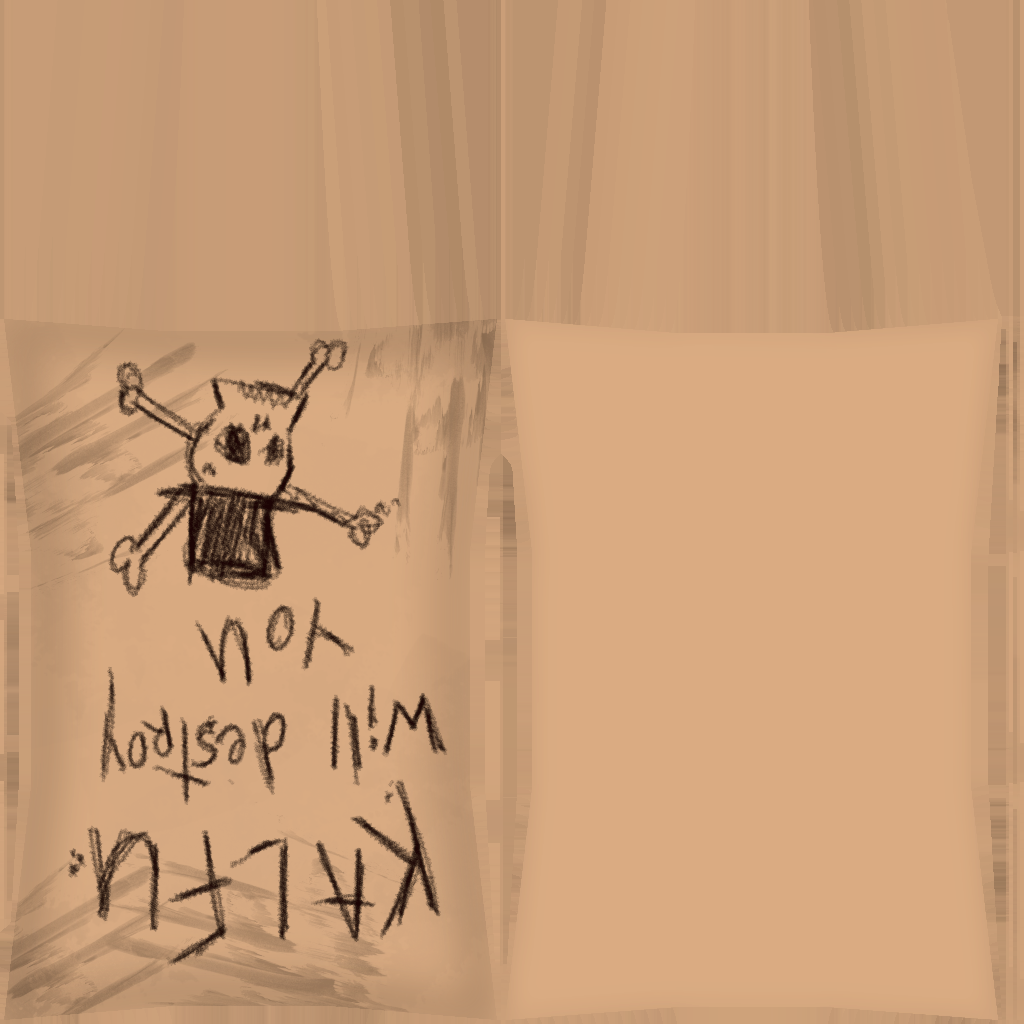 KALFU
Will destroy
You